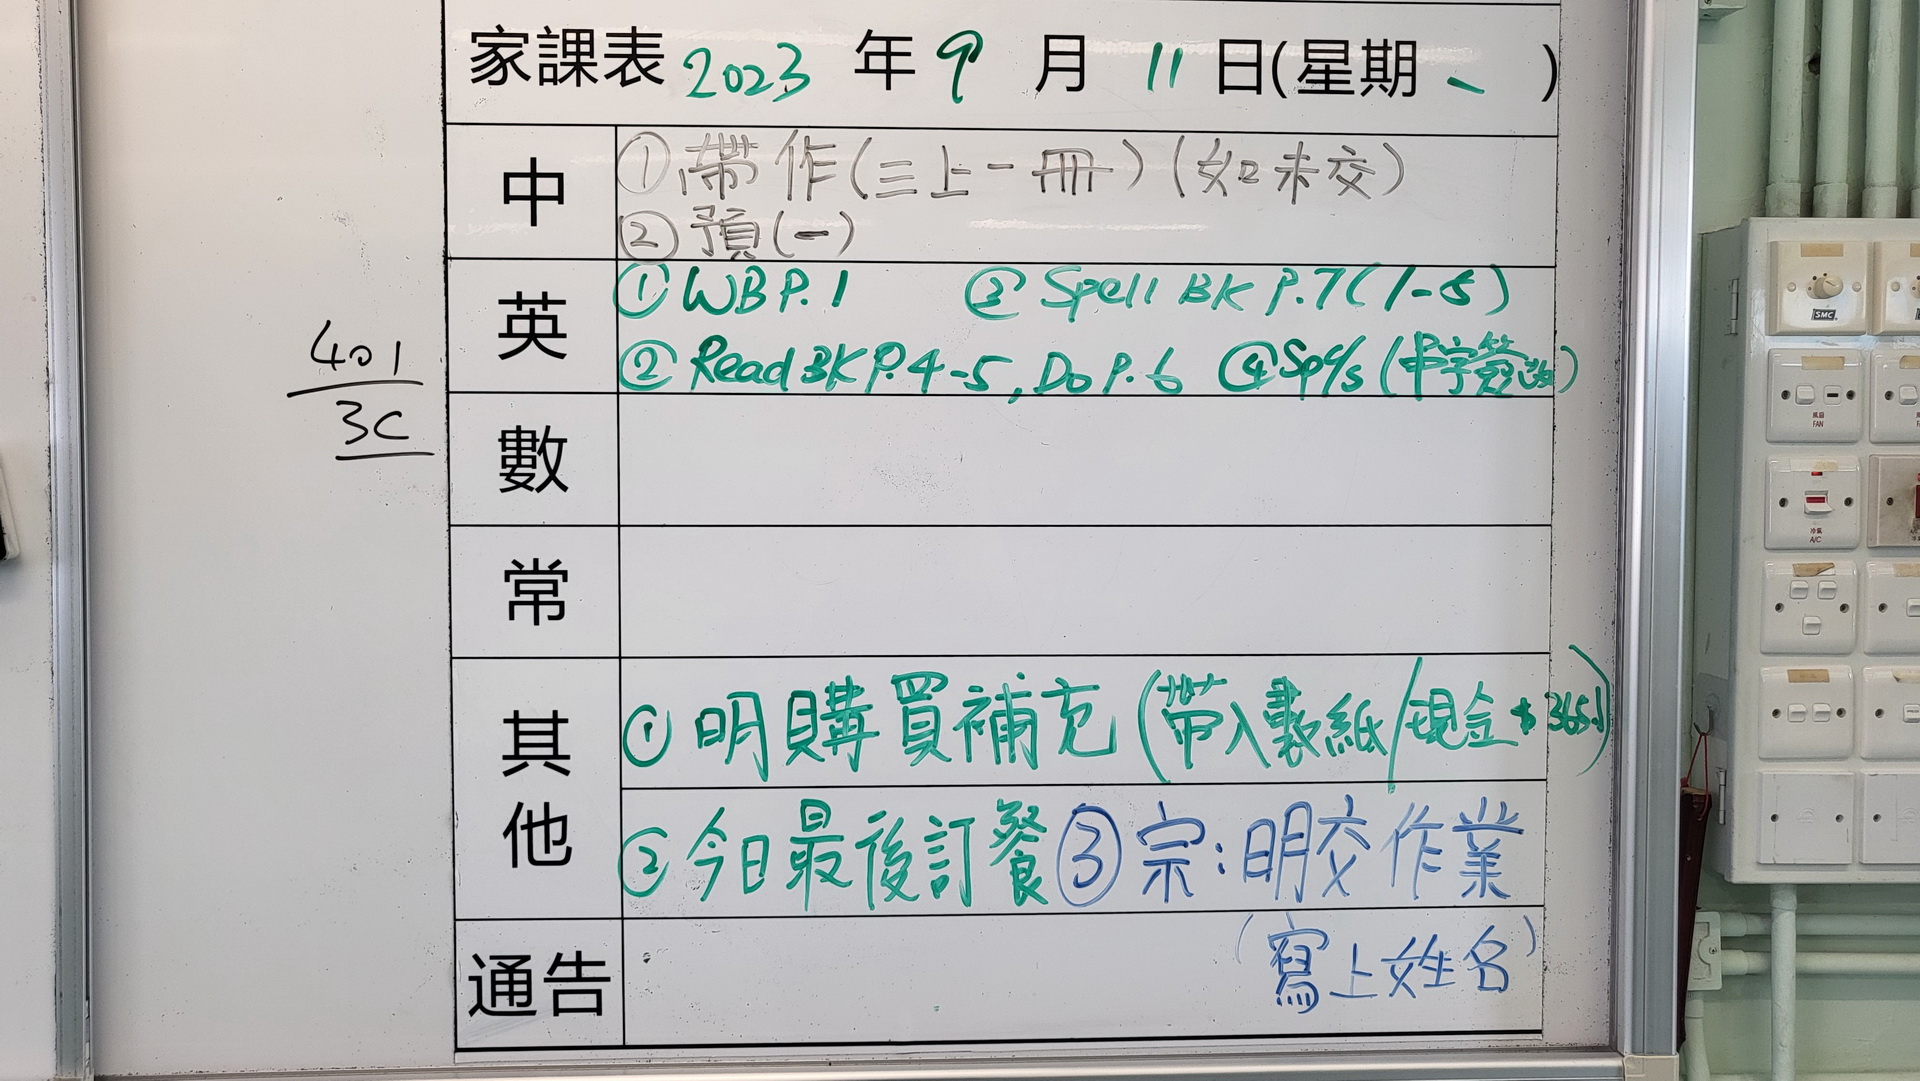 家課表 2023 年 9 月 11 日(星期 一 )
中
① 帶 作(三上一冊)(如未交)
② 預(一)
英
① WB P.1 ③ Spell BK P.7(1-5)
② Read BK P.4-5, Do P.6 ④ Sp c/s (串字簽改)
401
3C
數
常
其他
① 明購買補充(帶入數紙/現金 $365.)
② 今日最後訂餐 ③ 宗:明交作業
(寫上姓名)
通告
SMC
風扇
FAN
冷氣
A/C